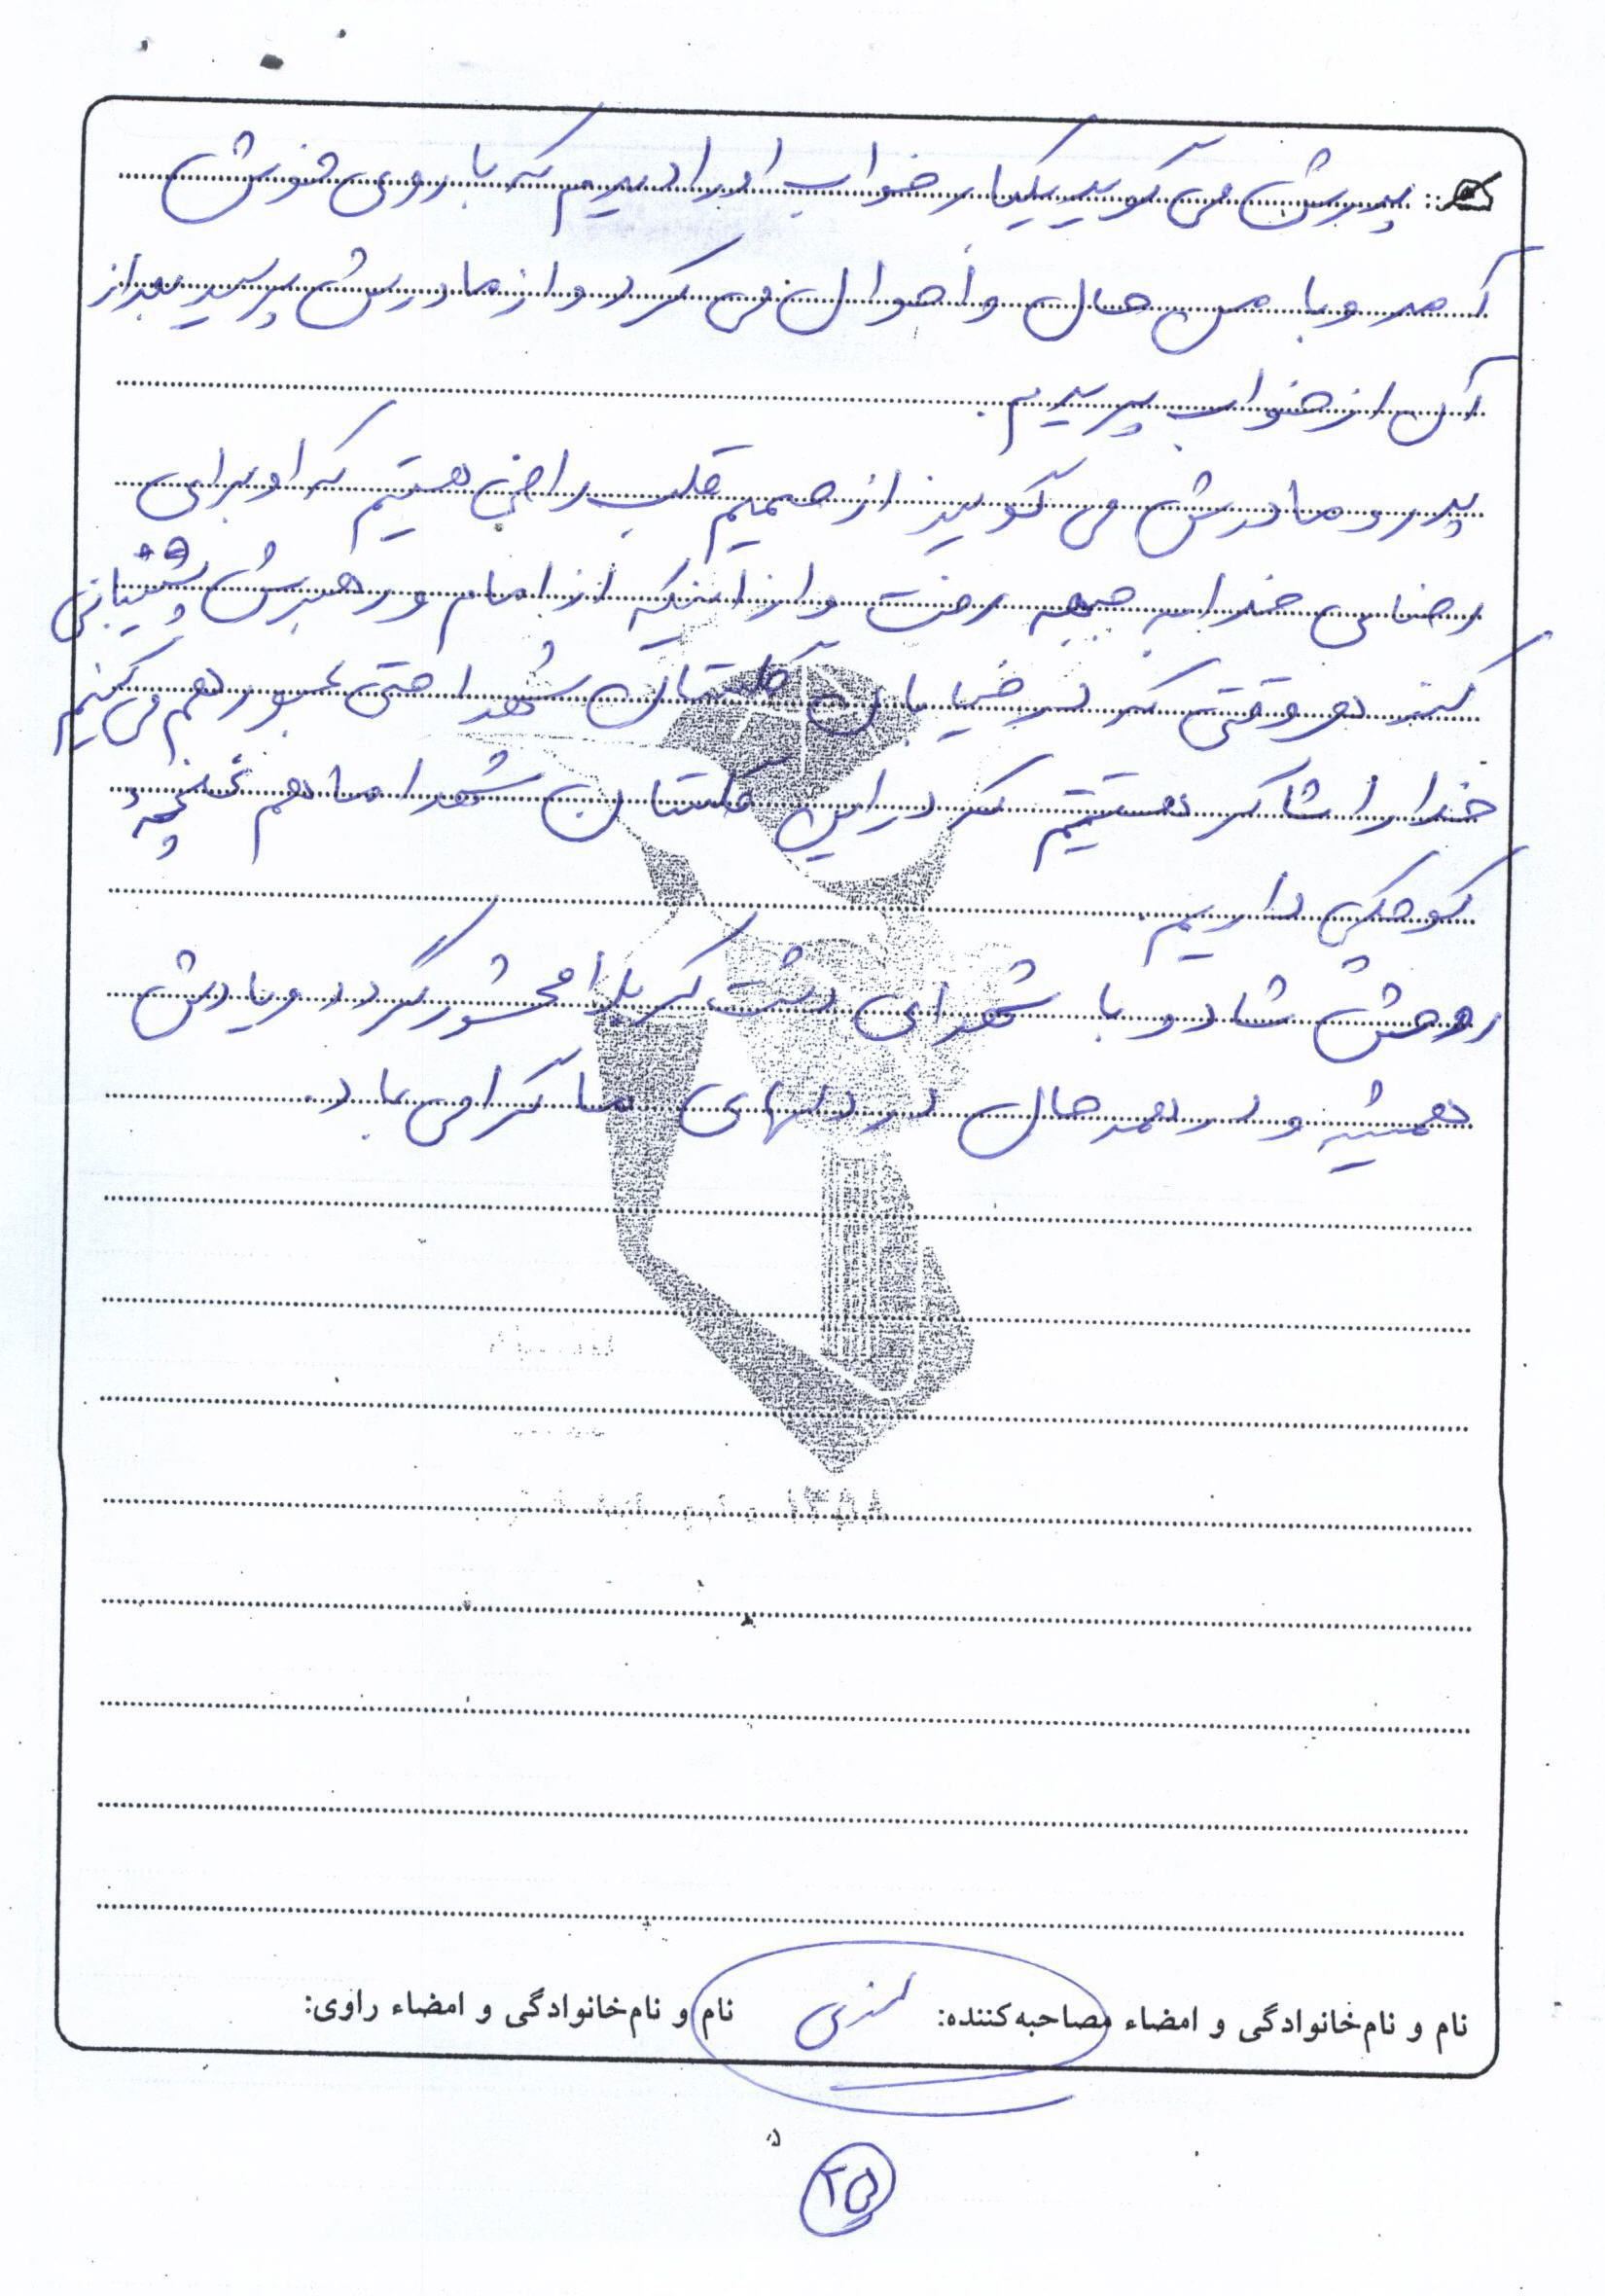 پدرش می گوید یکبار خواب او را دیدم که با روی خوش
آمد و با من حال و أحوال می کرد و از مادرش پرسید بعد از
آن از خواب پریدم.
پدر و مادرش می گویند از صمیم قلب راضی هستیم که او برای
رضای خدا به جبهه رفت و از اینکه از امام و رهبرش پشتیبانی
کند هر وقتی که در خیابان گلستان شهدا حتی عبور هم می کنیم
خدا را شاکر هستیم که در این گلستان شهدا ما هم غنچه
کوچکی داریم.
روحش شاد و با شهدای دشت کربلا محشور گردد و یادش
همیشه و در همه حال در دلهای ما گرامی باد.
۱۳۵۸
نام و نام‌خانوادگی و امضاء مصاحبه‌کننده:
نام و نام‌خانوادگی و امضاء راوی:
۲۵